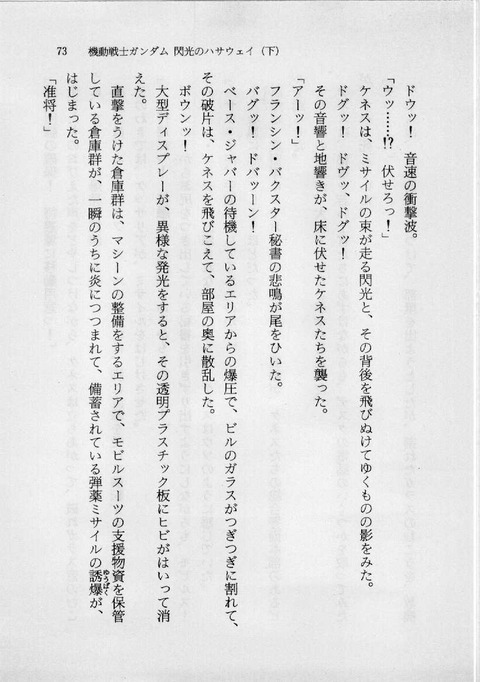 73 機動戦士ガンダム 閃光のハサウェイ（下）
ドウッ！ 音速の衝撃波。
「ウッ……!? 伏せろっ！」
ケネスは、ミサイルの束が走る閃光と、その背後を飛びぬけてゆくものの影をみた。
ドグッ！ ドヴッ、ドグッ！
その音響と地響きが、床に伏せたケネスたちを襲った。
「アーッ！」
フランシン・バクスター秘書の悲鳴が尾をひいた。
バグッ！ ドバッーン！
ベース・ジャバーの待機しているエリアからの爆圧で、ビルのガラスがつぎつぎに割れて、
その破片は、ケネスを飛びこえて、部屋の奥に散乱した。
ボウンッ！
大型ディスプレーが、異様な発光をすると、その透明プラスチック板にヒビがはいって消
えた。
直撃をうけた倉庫群は、マシーンの整備をするエリアで、モビルスーツの支援物資を保管
している倉庫群が、一瞬のうちに炎につつまれて、備蓄されている弾薬ミサイルの誘爆が、
ゆうばく
はじまった。
「准将！」